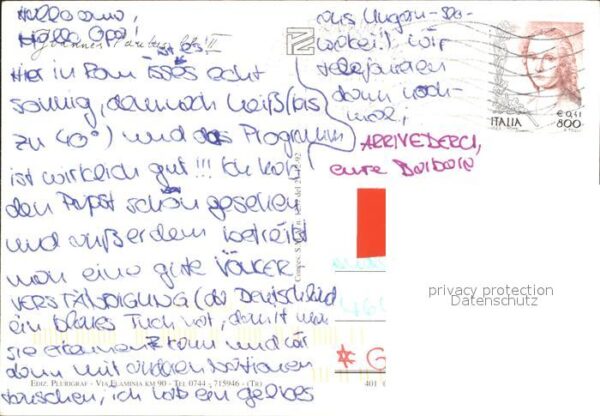 Hallo Oma,
Hallo Opa!
ist es!
Hier in Rom isses echt
sonnig, dennoch heiß (bis
zu 40°) und das Programm
ist wirklich gut!!! Ich hab
den Papst schon gesehen
und außerdem betreibt
man eine gute VÖLKER
VERSTÄNDIGUNG (die Deutschland
ein blaues Tuch hat, damit man
sie erkennen kann und wir
dann mit anderen Nationen
tauschen, ich hab ein gelbes
aus Ungarn
wobei! Wir
telefonieren
dann noch-
mal!
ARRIVEDERCI,
eure Barbara
ITALIA
€ 0,41
800
privacy protection
Datenschutz
EDIZ. PLURIGRAF - VIA FLAMINIA KM 90 - TEL 0744 - 715946 - (TR)
401